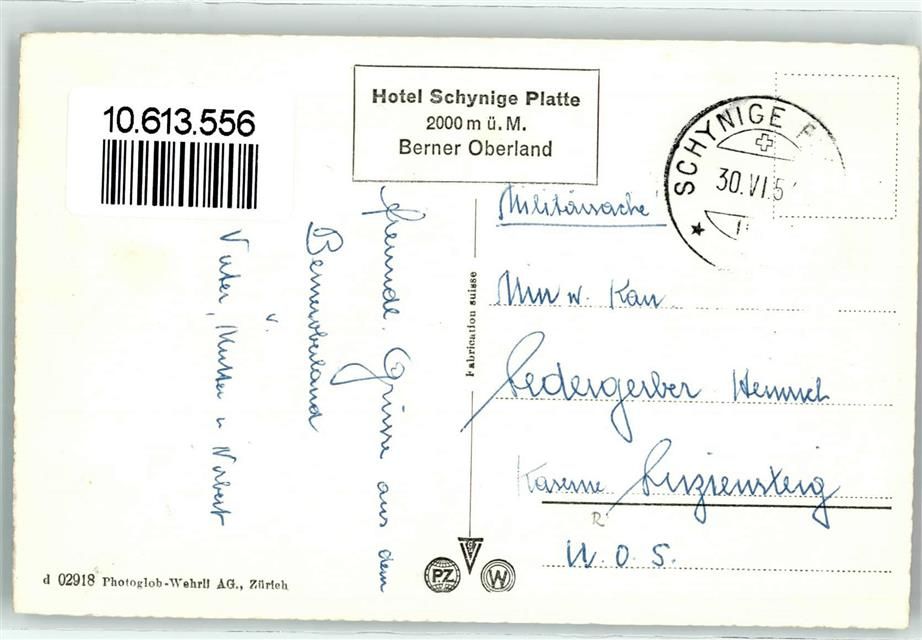 10.613.556
Hotel Schynige Platte
2000 m ü. M.
Berner Oberland
SCHYNIGE P
30.VI.5
freundl. Grüsse aus dem
Berneroberland
v.
Vater, Mutter u Norbert
Fabrication suisse
Militärsache!
Min w. Kan
Ledergerber Heinrich
Kaserne Luziensteig
R
U. O. S.
PZ
W
d 02918 Photoglob-Wehrli AG., Zürich